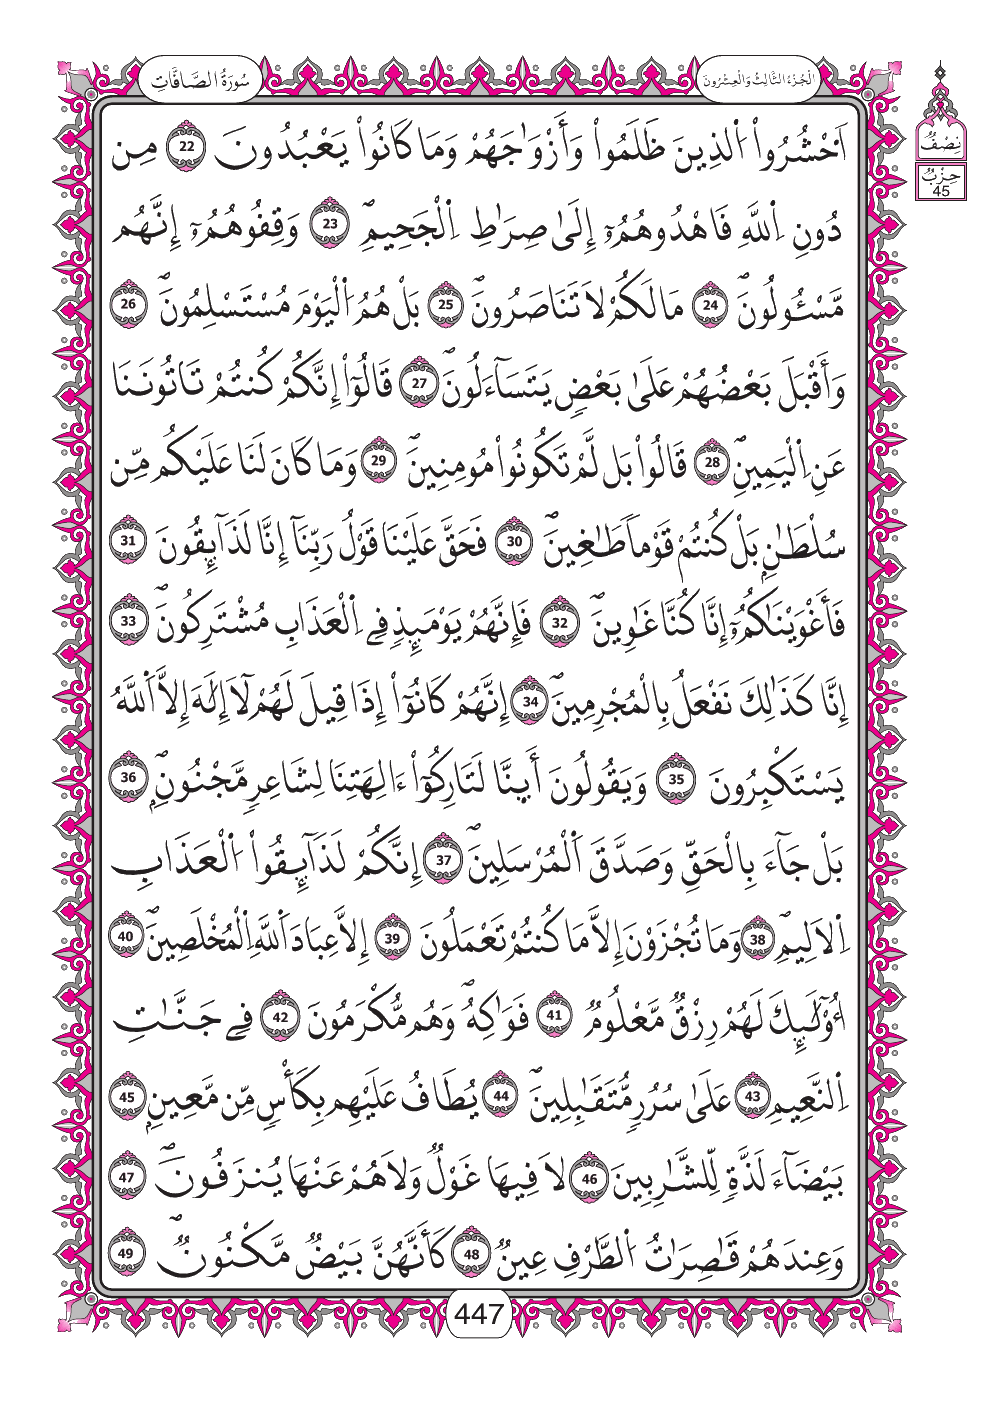 سُورَةُ الصَّافَّاتِ
الْجُزْءُ الثَّالِثُ وَالْعِشْرُونَ
نِصْفُ
حِزْبُ
45
اَ۟حْشُرُواْ اُ۬لذِينَ ظَلَمُواْ وَأَزْوَٰجَهُمْ وَمَا كَانُواْ يَعْبُدُونَ 22 مِن
دُونِ اِ۬للَّهِ فَاهْدُوهُمُۥٓ إِلَىٰ صِرَٰطِ اِ۬لْجَحِيمِۖ 23 وَقِفُوهُمُۥٓ إِنَّهُم
مَّسْـُٔولُونَۖ 24 مَا لَكُمْ لَا تَنَاصَرُونَۖ 25 بَلْ هُمُ اُ۬لْيَوْمَ مُسْتَسْلِمُونَۖ 26
وَأَقْبَلَ بَعْضُهُمْ عَلَىٰ بَعْضٖ يَتَسَآءَلُونَۖ 27 قَالُوٓاْ إِنَّكُمْ كُنتُمْ تَاتُونَنَا
عَنِ اِ۬لْيَمِينِۖ 28 قَالُواْ بَل لَّمْ تَكُونُواْ مُومِنِينَۖ 29 وَمَا كَانَ لَنَا عَلَيْكُم مِّن
سُلْطَٰنِۢ بَلْ كُنتُمْ قَوْماٗ طَٰغِينَۖ 30 فَحَقَّ عَلَيْنَا قَوْلُ رَبِّنَآ إِنَّا لَذَآئِقُونَ 31
فَأَغْوَيْنَٰكُمُۥٓ إِنَّا كُنَّا غَٰوِينَۖ 32 فَإِنَّهُمْ يَوْمَئِذٖ فِے اِ۬لْعَذَابِ مُشْتَرِكُونَۖ 33
إِنَّا كَذَٰلِكَ نَفْعَلُ بِالْمُجْرِمِينَۖ 34 إِنَّهُمْ كَانُوٓاْ إِذَا قِيلَ لَهُمْ لَآ إِلَٰهَ إِلَّا اَ۬للَّهُ
يَسْتَكْبِرُونَ 35 وَيَقُولُونَ أَئِنَّا لَتَارِكُوٓاْ ءَالِهَتِنَا لِشَاعِرٖ مَّجْنُونِۢۖ 36
بَلْ جَآءَ بِالْحَقِّ وَصَدَّقَ اَ۬لْمُرْسَلِينَۖ 37 إِنَّكُمْ لَذَآئِقُواْ اُ۬لْعَذَابِ
اِ۬لَالِيمِۖ 38 وَمَا تُجْزَوْنَ إِلَّا مَا كُنتُمْ تَعْمَلُونَ 39 إِلَّا عِبَادَ اَ۬للَّهِ اِ۬لْمُخْلَصِينَۖ 40
أُوْلَٰٓئِكَ لَهُمْ رِزْقٞ مَّعْلُومٞ 41 فَوَٰكِهُۖ وَهُم مُّكْرَمُونَ 42 فِے جَنَّٰتِ
اِ۬لنَّعِيمِ 43 عَلَىٰ سُرُرٖ مُّتَقَٰبِلِينَۖ 44 يُطَافُ عَلَيْهِم بِكَأْسٖ مِّن مَّعِينِۢ 45
بَيْضَآءَ لَذَّةٖ لِّلشَّٰرِبِينَ 46 لَا فِيهَا غَوْلٞ وَلَا هُمْ عَنْهَا يُنزَفُونَۖ 47
وَعِندَهُمْ قَٰصِرَٰتُ اُ۬لطَّرْفِ عِينٞ 48 كَأَنَّهُنَّ بَيْضٞ مَّكْنُونٞۖ 49
447